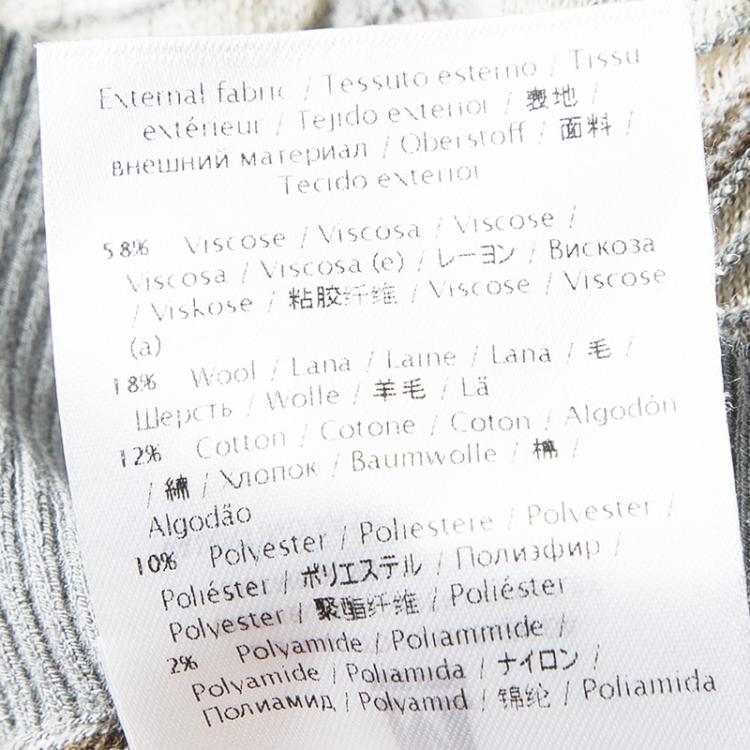 External fabric / Tessuto esterno / Tissu
extérieur / Tejido exterior / 表地 /
внешний материал / Oberstoff / 面料 /
Tecido exterior
58% Viscose / Viscosa / Viscose /
Viscosa / Viscosa (e) / レーヨン / Вискоза
/ Viskose / 粘胶纤维 / Viscose / Viscose
(a)
18% Wool / Lana / Laine / Lana / 毛 /
Шерсть / Wolle / 羊毛 / Lã
12% Cotton / Cotone / Coton / Algodón
/ 綿 / Хлопок / Baumwolle / 棉 /
Algodão
10% Polyester / Poliestere / Polyester /
Poliéster / ポリエステル / Полиэфир /
Polyester / 聚酯纤维 / Poliéster
2% Polyamide / Poliammide /
Polyamide / Poliamida / ナイロン /
Полиамид / Polyamid / 锦纶 / Poliamida